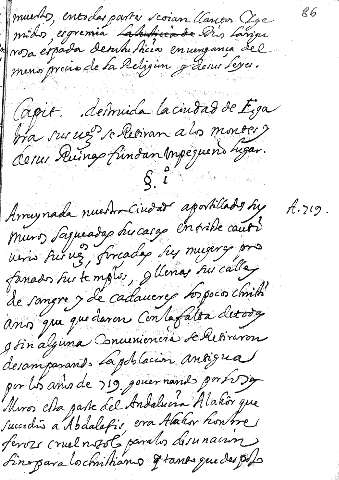 86
muertos, en todas partes se oian llantos Y ge
midos, esgremia la Justicia de Dios la rigu
rosa espada de su Justicia en venganza del
menosprecio de la Religion y de sus leyes.
Capit. destruida la ciudad de Ega
bra sus veZ.s se Retiran a los montes y
de sus Ruinas fundan un pequeño lugar.
§. 1
Arruynada nuestra Ciudad aportillados sus
muros saqueadas sus casas en triste cauti
verio sus veZ.s, forcadas sus mugeres pro
fanados sus templos, y llenas sus calles
de sangre y de cadaveres los pocos christi
anos que quedaron con la falta de todo
y sin alguna conveniencia se Retiraron
desamparando la poblacion antigua
por los años de 719 governando por los
Moros esta parte del Andalucia Alahor que
sucedio a Abdalasis, era Alahor hombre
feroz y cruel no solo para los de su nacion
sino para los christianos y tanto que des polo
A. 719.